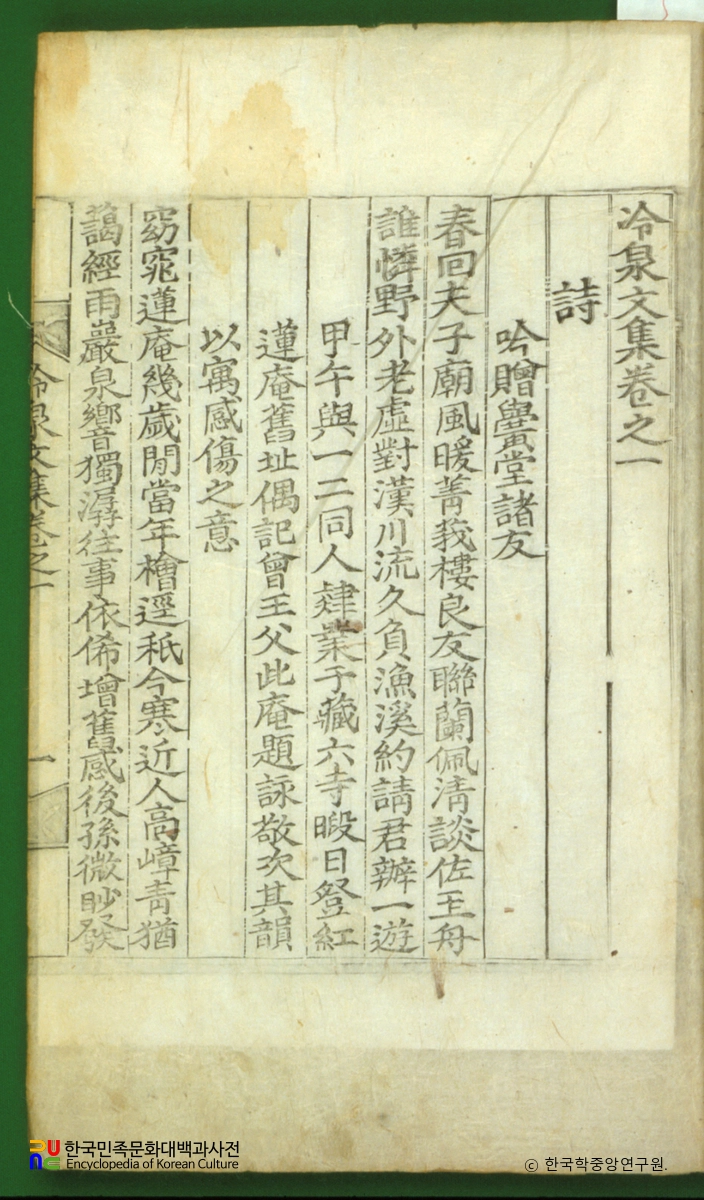 冷泉文集卷之一
詩
吟贈黌堂諸友
春回夫子廟風暖菁莪樓良友聯蘭佩淸談佐玉舟
誰憐野外老虛對漢川流久負漁溪約請君辦一遊
甲午與一二同人肄業于藏六寺暇日登紅
蓮庵舊址偶記曾王父此庵題詠敬次其韻
以寓感傷之意
窈窕蓮庵幾歲閒當年檜逕秖今寒近人高嶂靑猶
藹經雨巖泉響獨潺往事依俙增舊感後孫微眇發
冷泉文集卷之一
一
한국민족문화대백과사전
Encyclopedia of Korean Culture
© 한국학중앙연구원.